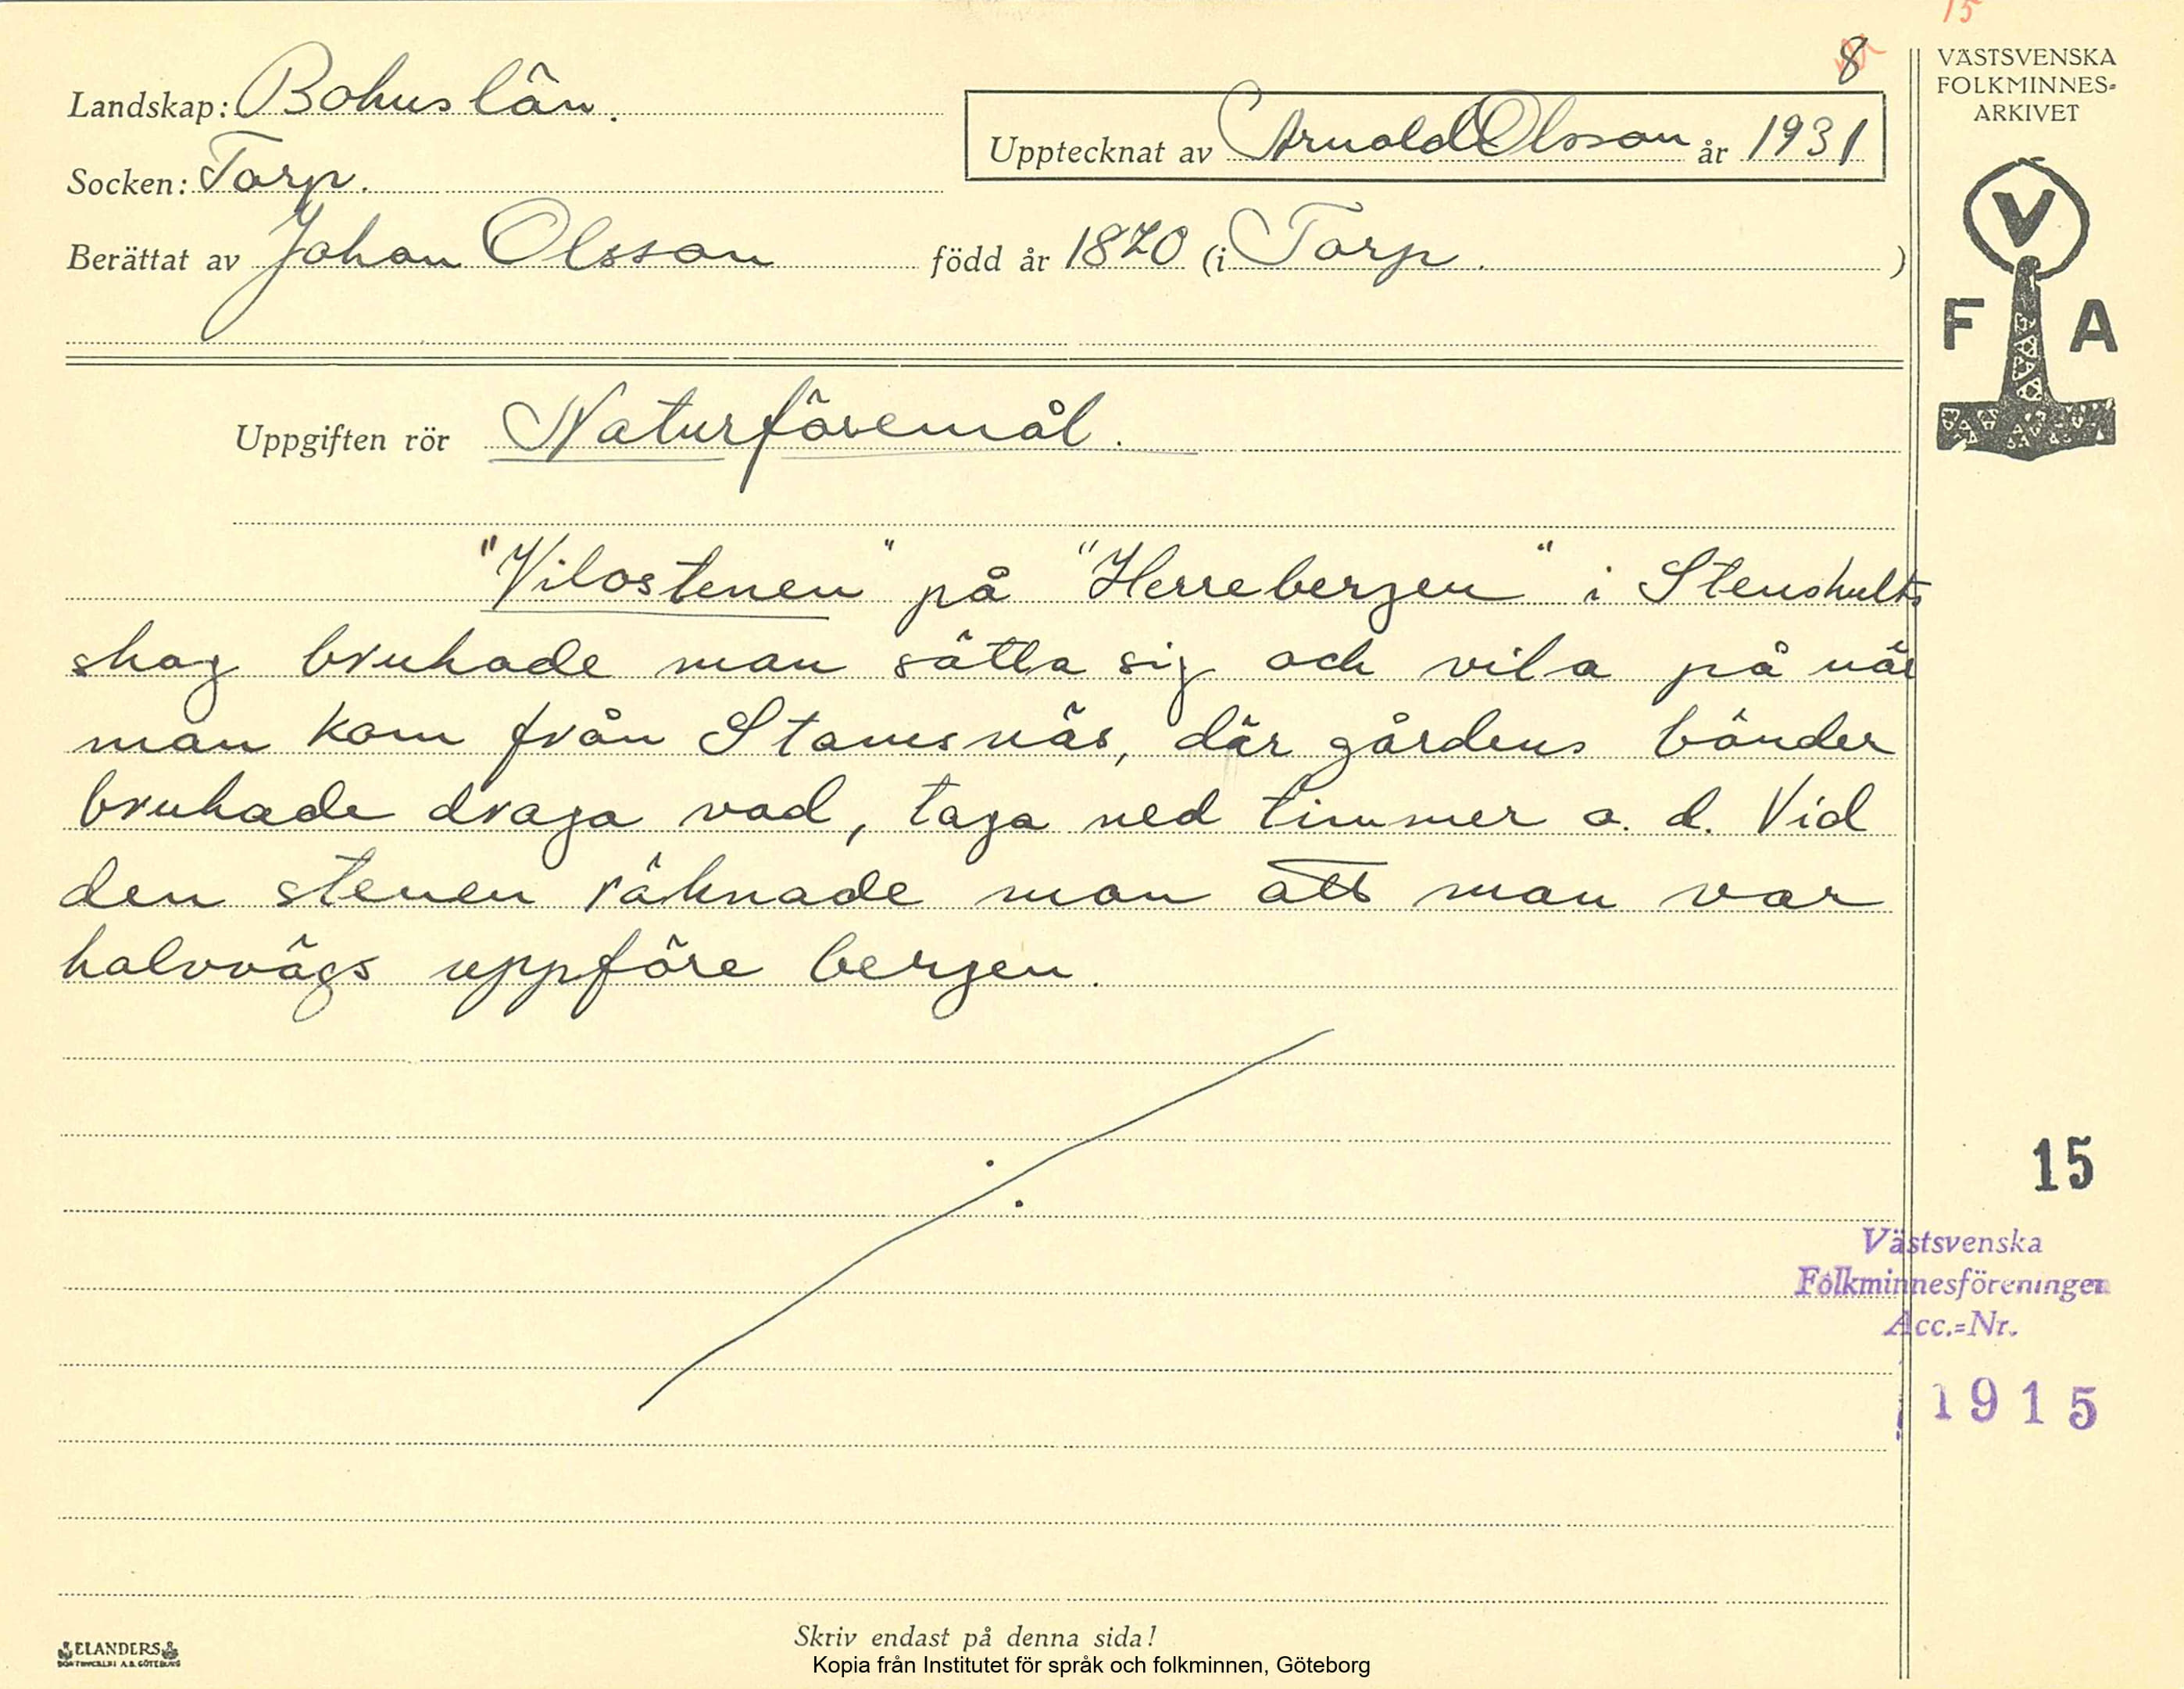 15
8
VÄSTSVENSKA
FOLKMINNES=
ARKIVET
Landskap: Bohuslän.
Upptecknat av Arnold Olsson år 1931
Socken: Torp.
Berättat av Johan Olsson född år 1870 (i Torp. )
V
F A
Uppgiften rör Naturföremål.
"Vilostenen" på "Herrebergen" i Stenshults
skog brukade man sätta sig och vila på när
man kom från Stamsnäs, där gårdens bönder
brukade draga vad, taga ned timmer o. d. Vid
den stenen räknade man att man var
halvvägs uppföre bergen.
15
Västsvenska
Folkminnesföreningen
Acc.=Nr.
1915
Skriv endast på denna sida!
ELANDERS
BOKTRYCKERI A.B. GÖTEBORG
Kopia från Institutet för språk och folkminnen, Göteborg